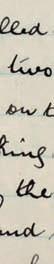 lled
two
on t
king
the
und